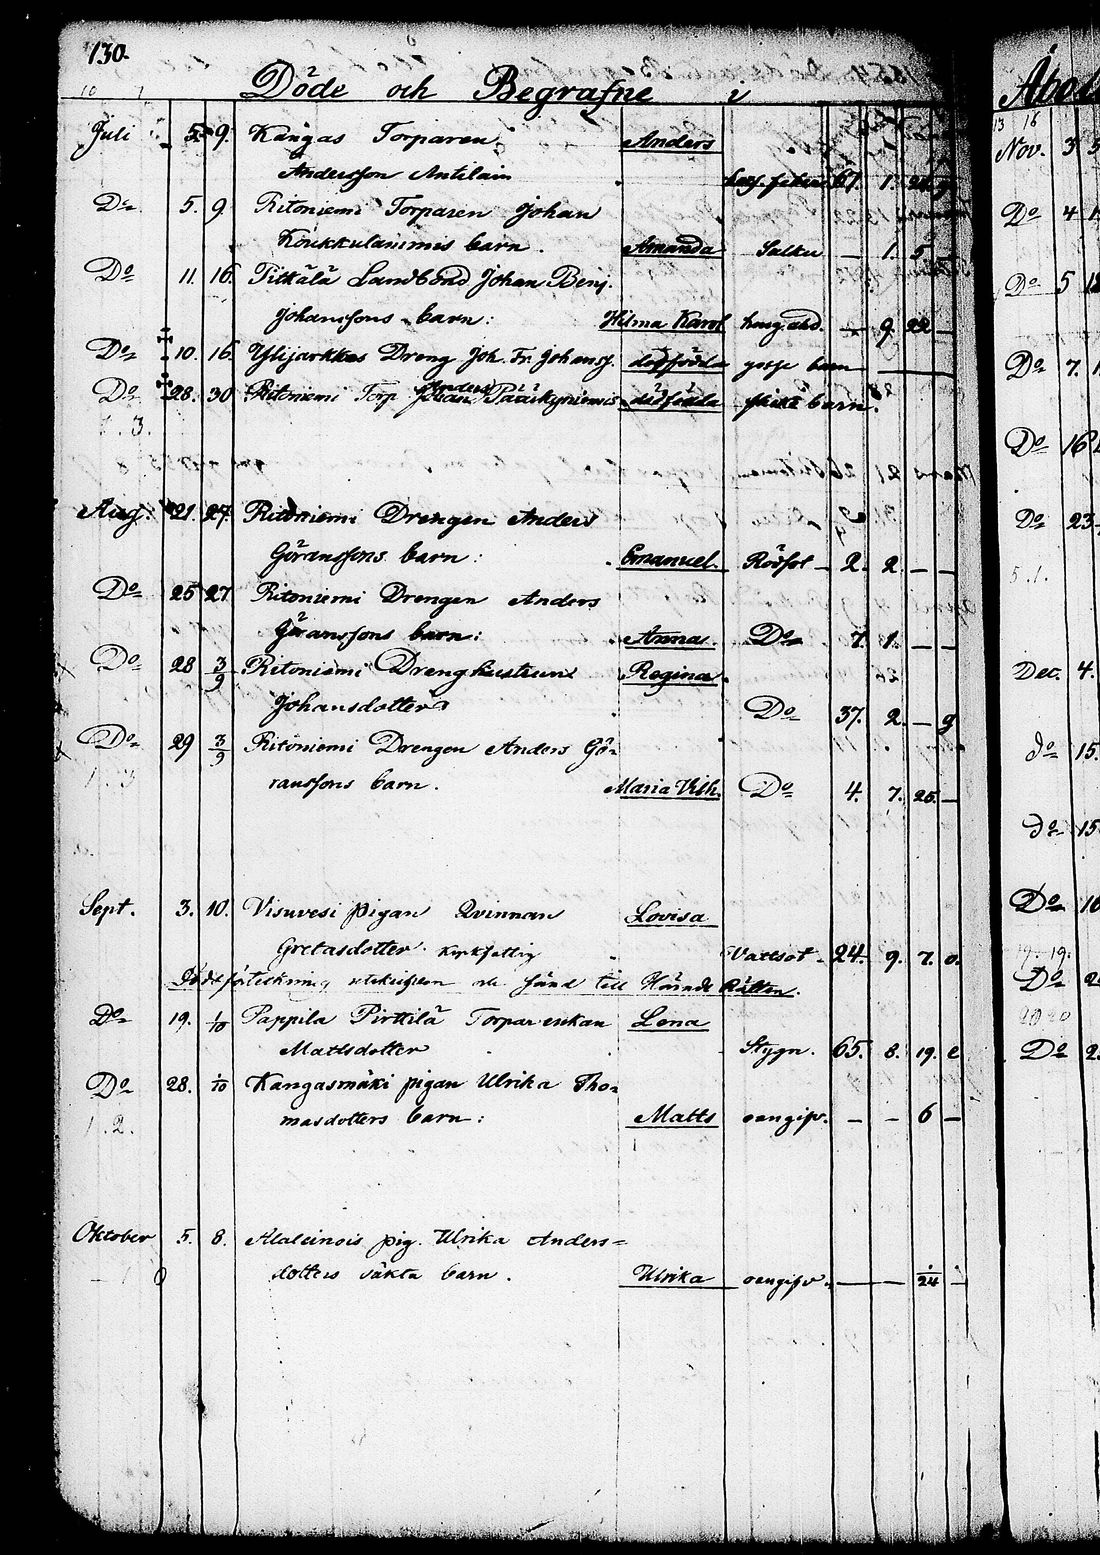 130.
Döde och Begrafne i
Juli 5. 9. Kangas Torparen Anders
Andersson Antilain 67. 1.
Do 5. 9. Ritoniemi Torparen Johan
Koukkulammis barn. Amanda 1. 5
Do 11. 16. Pitkälä Landbond Johan Benj.
Johanssons barn: Hilma Karol - 9. 22 -
Do 10. 16. Ylijarkkas Dreng Joh. Fr. Johanss. dödfödda gosse barn
Do 28. 30 Ritoniemi Torp Anders dödföda flicke barn.
1. 3.
Aug. 21. 27. Ritoniemi Drengen Anders
Göranssons barn: Emanuel Rödsot - 2. 2. - -
Do 25 27 Ritoniemi Drengen Anders
Göranssons barn: Anna Do 7. 1. - -
Do 28 3/9 Ritoniemi Dreng hustrun Regina
Johansdotter Do 37. 2. - g
Do 29 3/9 Ritoniemi Drengen Anders Gö-
ranssons barn. Maria Vilh. Do 4. 7. 25. -
1. 3
Sept. 3. 10. Visuvesi pigan Qvinnan Lovisa
Gretasdotter Vattsot. 24. 9. 7. o.
till Härads Rätten.
Do 19. 1/10 Pappila Pirttilä Torparenkan Lena
Mattsdotter Stygn. 65. 8. 19. e
Do 28. 1/10 Kangasmäki pigan Ulrika Tho-
masdotters barn: Matts oangifv. - - 6 -
1. 2.
Oktober 5. 8. pig. Ulrika Anders-
dotters oäkta barn. Ulrika oangifv. - - 1/24
Åbo
13 16
Nov. 3
Do 4
Do 5
Do 7.
Do 16
Do 23
5. 1.
Dec. 4.
do 15.
do 15
Do 10
19. 19.
Do 2
20 20
Do 2